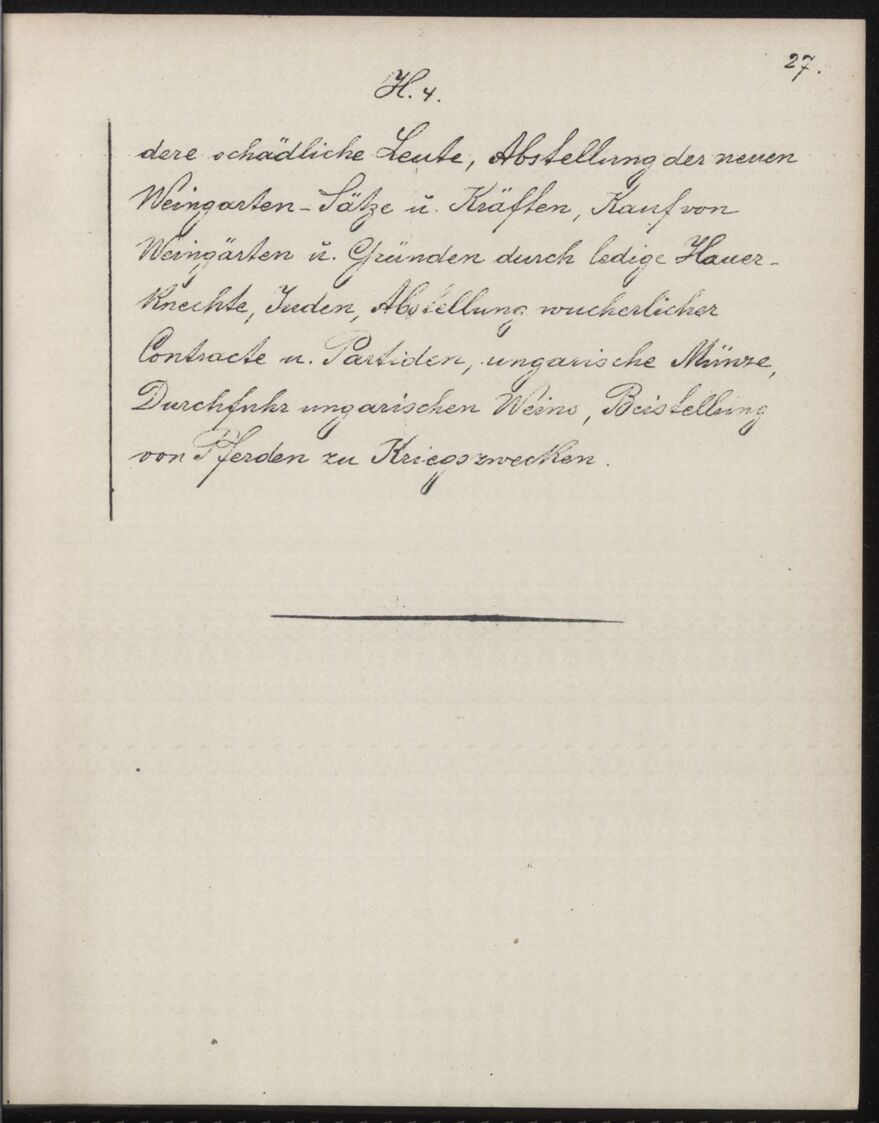 27.
H. 4.
dere schädliche Leute, Abstellung der neuen
Weingarten-Sätze u. Kräften, Kauf von
Weingärten u. Gründen durch ledige Hauer-
Knechte, Juden, Abstellung wucherlicher
Contracte u. Partiden, ungarische Münze,
Durchfuhr ungarischen Weins, Beistellung
von Pferden zu Kriegszwecken.